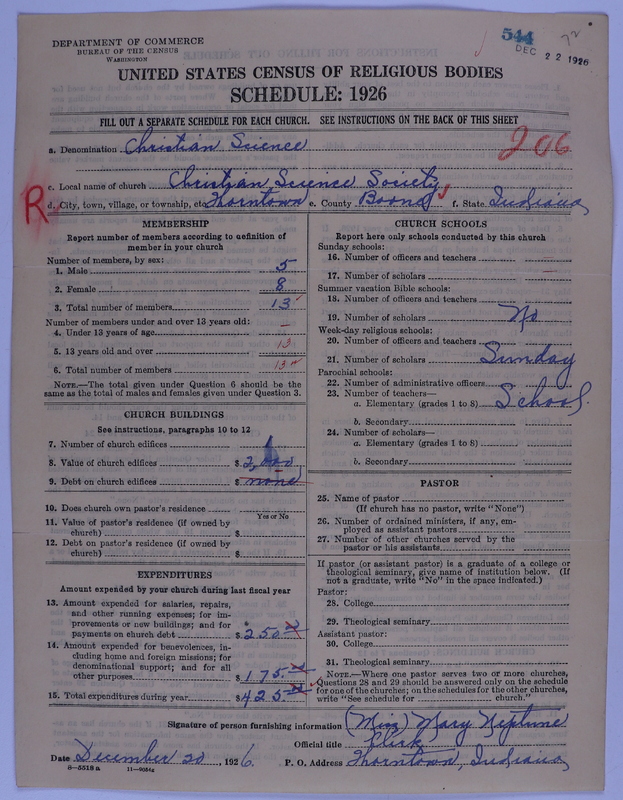 544
DEC 22 1926
72
DEPARTMENT OF COMMERCE
BUREAU OF THE CENSUS
WASHINGTON
UNITED STATES CENSUS OF RELIGIOUS BODIES
SCHEDULE: 1926
FILL OUT A SEPARATE SCHEDULE FOR EACH CHURCH. SEE INSTRUCTIONS ON THE BACK OF THIS SHEET
a. Denomination Christian Science
206
c. Local name of church Christian Science Society
R
d. City, town, village, or township, etc Thorntown e. County Boone f. State Indiana
MEMBERSHIP
Report number of members according to definition of
member in your church
Number of members, by sex:
1. Male 5
2. Female 8
3. Total number of members 13
Number of members under and over 13 years old:
4. Under 13 years of age —
5. 13 years old and over 13
6. Total number of members 13
NOTE.—The total given under Question 6 should be the
same as the total of males and females given under Question 3.
CHURCH BUILDINGS
See instructions, paragraphs 10 to 12
7. Number of church edifices 1
8. Value of church edifices $ 2,000
9. Debt on church edifices $ none
10. Does church own pastor's residence
Yes or No
11. Value of pastor's residence (if owned by
church) $
12. Debt on pastor's residence (if owned by
church) $
EXPENDITURES
Amount expended by your church during last fiscal year
13. Amount expended for salaries, repairs,
and other running expenses; for im-
provements or new buildings; and for
payments on church debt $ 250.
14. Amount expended for benevolences, in-
cluding home and foreign missions; for
denominational support; and for all
other purposes $ 175.
15. Total expenditures during year $ 425
CHURCH SCHOOLS
Report here only schools conducted by this church
Sunday schools:
16. Number of officers and teachers
17. Number of scholars
Summer vacation Bible schools:
18. Number of officers and teachers
19. Number of scholars No
Week-day religious schools:
20. Number of officers and teachers
21. Number of scholars Sunday
Parochial schools:
22. Number of administrative officers
23. Number of teachers—
a. Elementary (grades 1 to 8) School.
b. Secondary
24. Number of scholars—
a. Elementary (grades 1 to 8)
b. Secondary
PASTOR
25. Name of pastor
(If church has no pastor, write "None")
26. Number of ordained ministers, if any, em-
ployed as assistant pastors
27. Number of other churches served by the
pastor or his assistants
If pastor (or assistant pastor) is a graduate of a college or
theological seminary, give name of institution below. (If
not a graduate, write "No" in the space indicated.)
Pastor:
28. College
29. Theological seminary
Assistant pastor:
30. College
31. Theological seminary
NOTE.—Where one pastor serves two or more churches,
Questions 28 and 29 should be answered only on the schedule
for one of the churches; on the schedules for the other churches,
write "See schedule for church."
Signature of person furnishing information (Miss) Mary Neptune
Official title Clerk
Date December 20, 1926. P. O. Address Thorntown, Indiana
8—5518 a